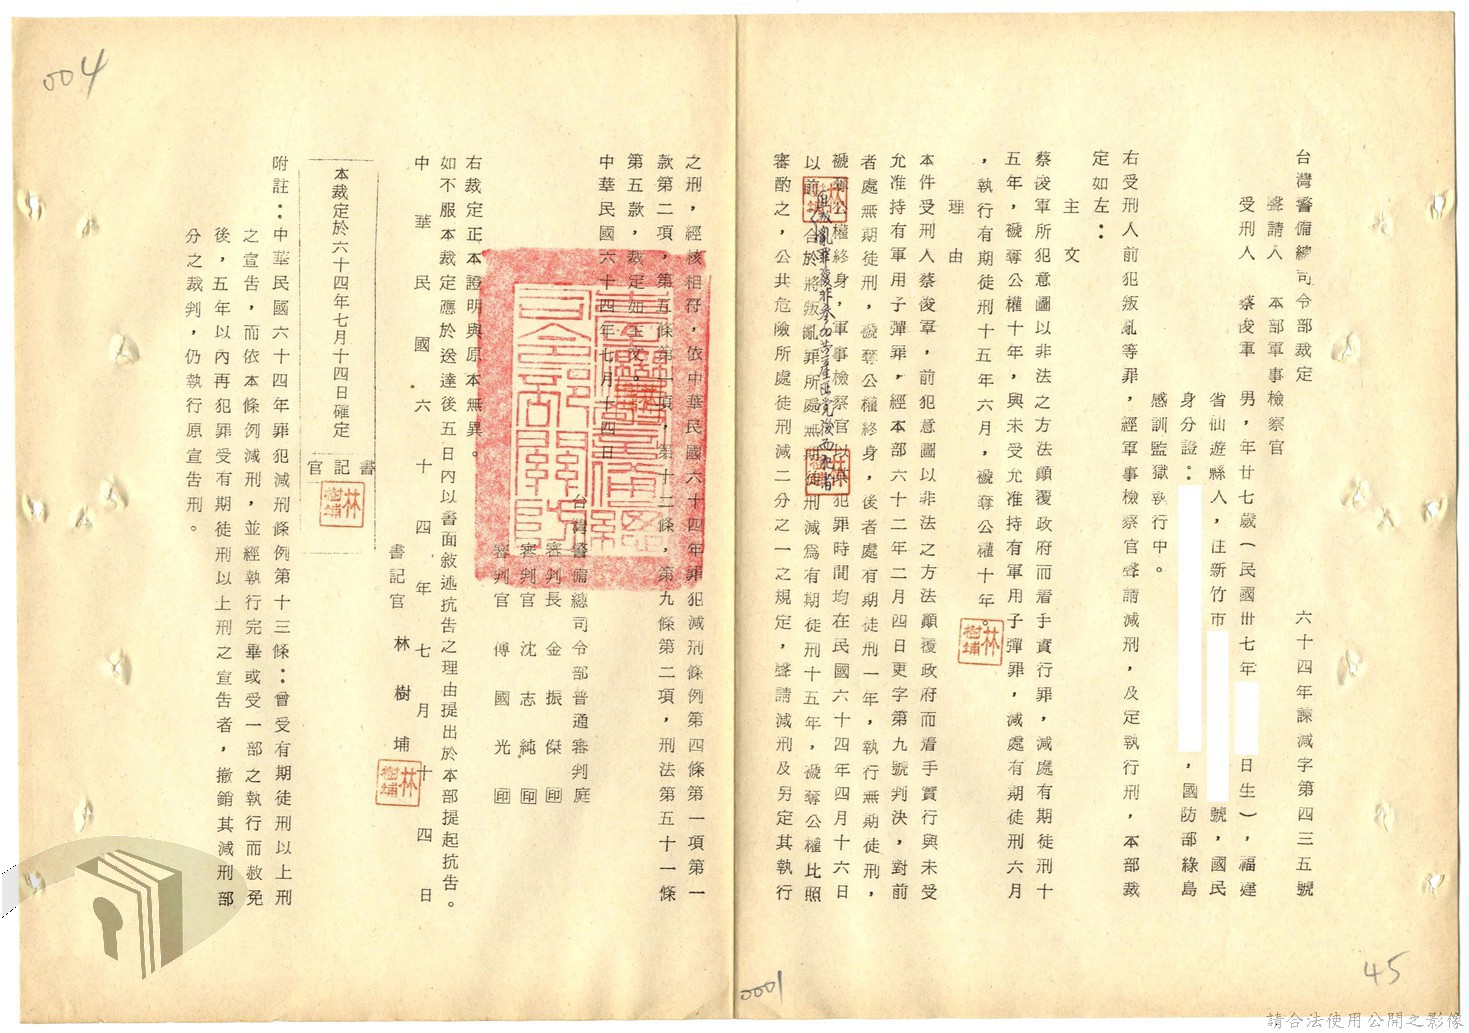 台灣警備總司令部裁定
六十四年諫減字第四三五號
聲請人 本部軍事檢察官
受刑人 蔡俊軍 男，年廿七歲（民國卅七年
日生），福建
省仙遊縣人，住新竹市
號，國民
身分證：
，國防部綠島
感訓監獄執行中。
右受刑人前犯叛亂等罪，經軍事檢察官聲請減刑，及定執行刑，本部裁
定如左：
主文
蔡俊軍所犯意圖以非法之方法顛覆政府而着手實行罪，減處有期徒刑十
五年，褫奪公權十年，與未受允准持有軍用子彈罪，減處有期徒刑六月
，執行有期徒刑十五年六月，褫奪公權十年。
林樹埔
理由
本件受刑人蔡俊軍，前犯意圖以非法之方法顛覆政府而着手實行與未受
允准持有軍用子彈罪，經本部六十二年二月四日更字第九號判決，對前
者處無期徒刑，褫奪公權終身，後者處有期徒刑一年，執行無期徒刑，
褫奪公權終身，軍事檢察官以其犯罪時間均在民國六十四年四月十六日
以前，
且叛亂罪復非參加共產匪黨後而犯者
合於將叛亂罪所處無期徒刑減為有期徒刑十五年，褫奪公權比照
審酌之，公共危險所處徒刑減二分之一之規定，聲請減刑及另定其執行
之刑，經核相符，依中華民國六十四年罪犯減刑條例第四條第一項第一
款第二項，第五條第一項，第十二條，第九條第二項，刑法第五十一條
第五款，裁定如主文。
中華民國六十四年七月十四日
台灣警備總司令部普通審判庭
審判長 金振傑 印
審判官 沈志純 印
審判官 傅國光 印
右裁定正本證明與原本無異。
如不服本裁定應於送達後五日內以書面敘述抗告之理由提出於本部提起抗告。
中華民國六十四年七月十四日
書記官 林樹埔
林樹埔
本裁定於六十四年七月十四日確定
書記官
林樹埔
附註：中華民國六十四年罪犯減刑條例第十三條：曾受有期徒刑以上刑
之宣告，而依本條例減刑，並經執行完畢或受一部之執行而赦免
後，五年以內再犯罪受有期徒刑以上刑之宣告者，撤銷其減刑部
分之裁判，仍執行原宣告刑。
004
0001
45
請合法使用公開之影像